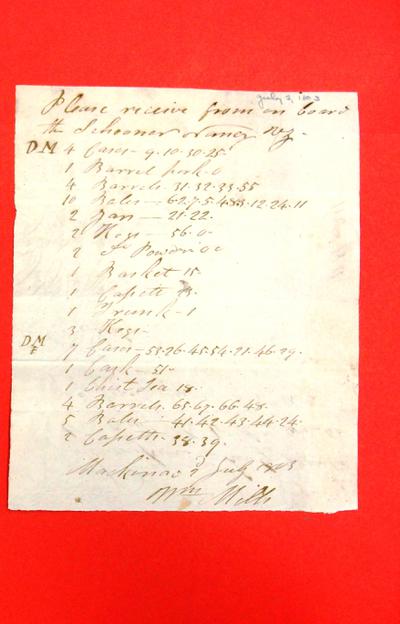 July 2, 1803
Please receive from on board
the Schooner Nancy Viz.
DM 4 Cases - 9.10.30.25.
1 Barrel Pork - 0
4 Barrels. 31.32.33.55
10 Bales - 6.2.7.5.4.83.12.24.11
2 Jars - 21.22.
2 Kegs - 56.0
2 Do Powder 00
1 Basket 15
1 Cassett
1 Trunk - 1
3 Kegs -
DM 7 Cases - 53.26.45.54.21.46.29.
1 Cask - 51
1 Chest Tea 18.
4 Barrels. 65.67.66.48.
5 Bales - 41.42.43.44.24.
2 Cassetts. 38.39.
Mackinac 2d July 1803
Wm Mills